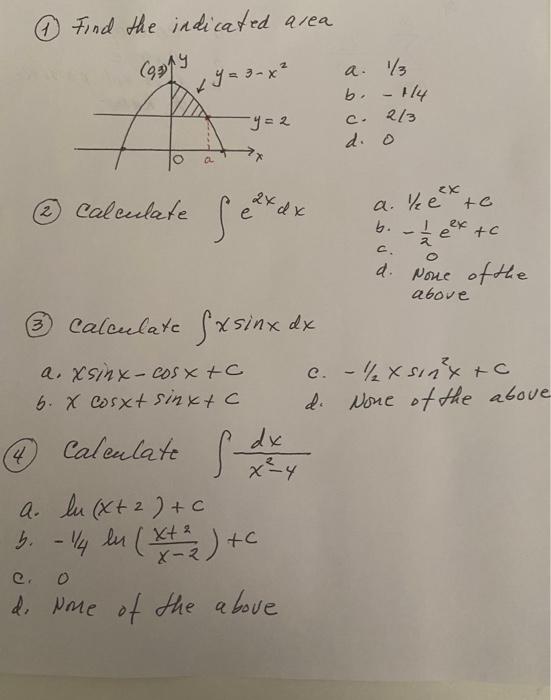 ① Find the indicated area
(0,3) y y = 3 - x²
y = 2
O a x
a. 1/3
b. - 1/4
c. 2/3
d. 0
② Calculate ∫ e^{2x} dx
a. ½ e^{2x} + C
b. - 1/2 e^{2x} + C
c. 0
d. None of the
above
③ Calculate ∫ x sinx dx
a. x sinx - cosx + C
b. x cosx + sinx + C
c. - ½ x sin²x + C
d. None of the above
④ Calculate ∫ dx / (x² - 4)
a. ln (x + 2) + C
b. - ¼ ln ( (x + 2) / (x - 2) ) + C
c. 0
d. None of the above